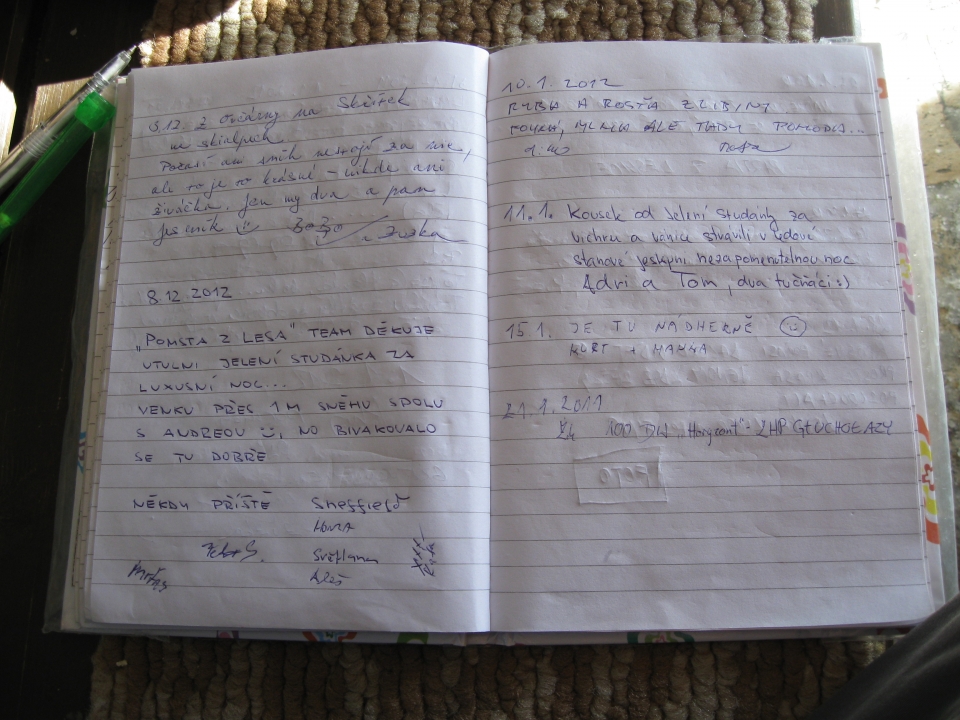 8.12. Z Ovčárny na Skřítek
na skialpech
Počasí ani sníh nestojí za nic,
ale to je to krásné - nikde ani
živáčka, jen my dva a pan
Jeseník
a Zuzka
8.12.2012
„POMSTA Z LESA" TEAM DĚKUJE
UTULNI JELENÍ STUDÁNKA ZA
LUXUSNÍ NOC...
VENKU PŘES 1M SNĚHU SPOLU
S ANDREOU, NO BIVAKOVALO
SE TU DOBŘE
NĚKDY PŘÍŠTĚ Sheffield
HONZA
Petr S. Světlana
Aleš
10.1.2012
RYBA A ROSŤA Z LIBINY
FOUKÁ, MLHA ALE TADY POHODA...
11.1. Kousek od Jelení studánky za
vichru a vánice strávili v ledové
stanové jeskyni nezapomenutelnou noc
Adri a Tom, dva tučňáci :)
15.1. JE TU NÁDHERNĚ
KURT + HANKA
21.1.2011
100 DH „Horyzont" - ZHP GŁUCHOŁAZY
FOTO